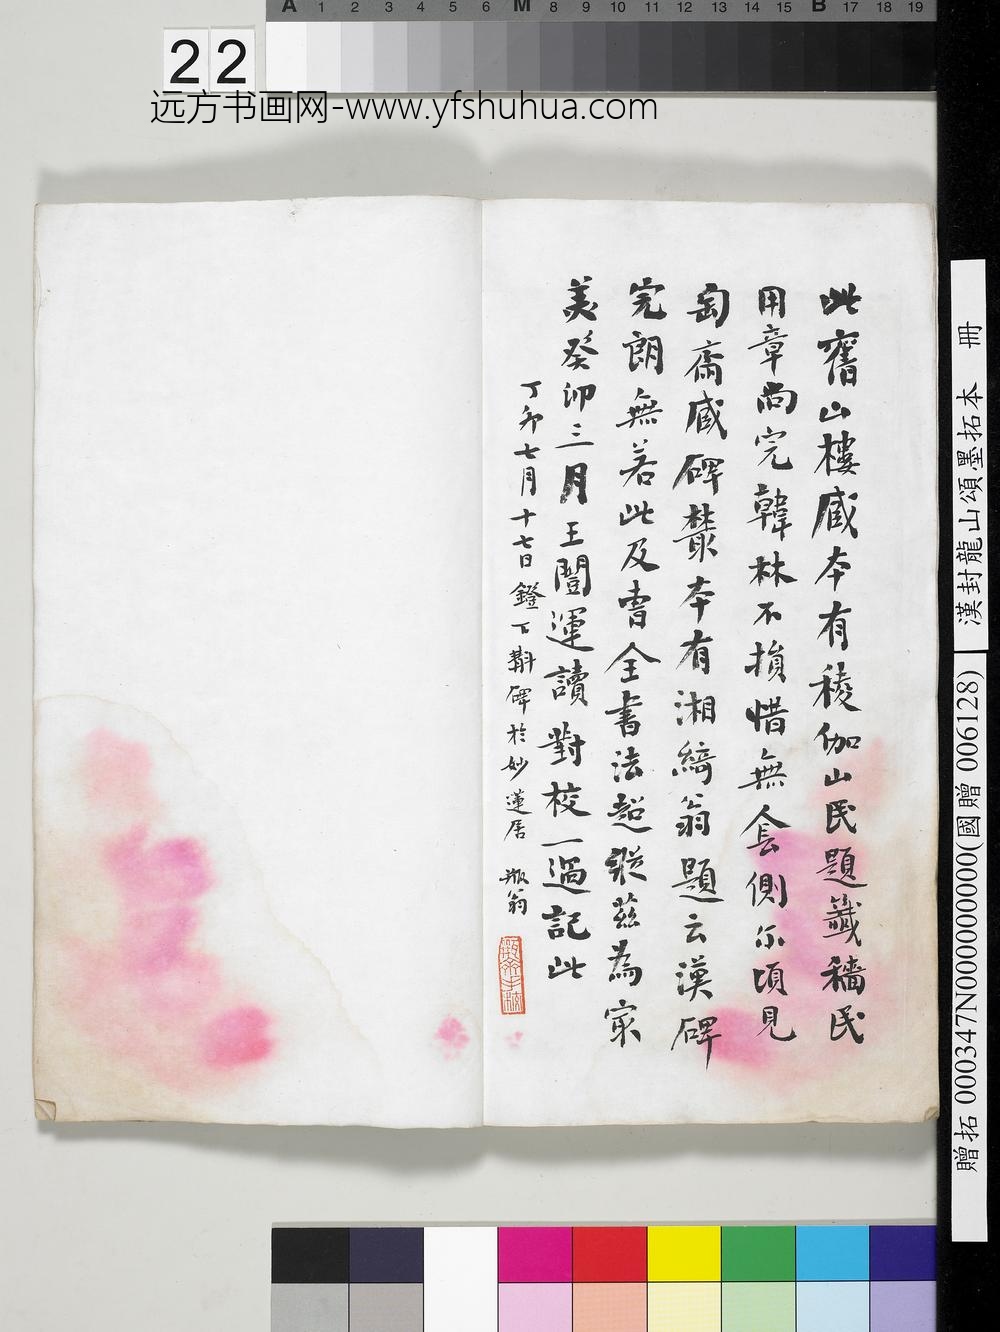 A 1 2 3 4 5 6 M 8 9 10 11 12 13 14 15 B 17 18 19
22
远方书画网-www.yfshuhua.com
此舊山樓臧本有稜伽山民題籤穡民
用章尚完韓林不損惜無侖側尔頃見
匋齋臧碑蘗本有湘綺翁題云漢碑
完朗無若此及書全書法超縱茲為寂
美癸卯三月王闓運讀對校一過記此
丁卯七月十七日鐙下斠碑於妙蓮居 瓶翁
漢封龍山頌墨拓本 冊
贈拓 000347N000000000(國贈 006128)